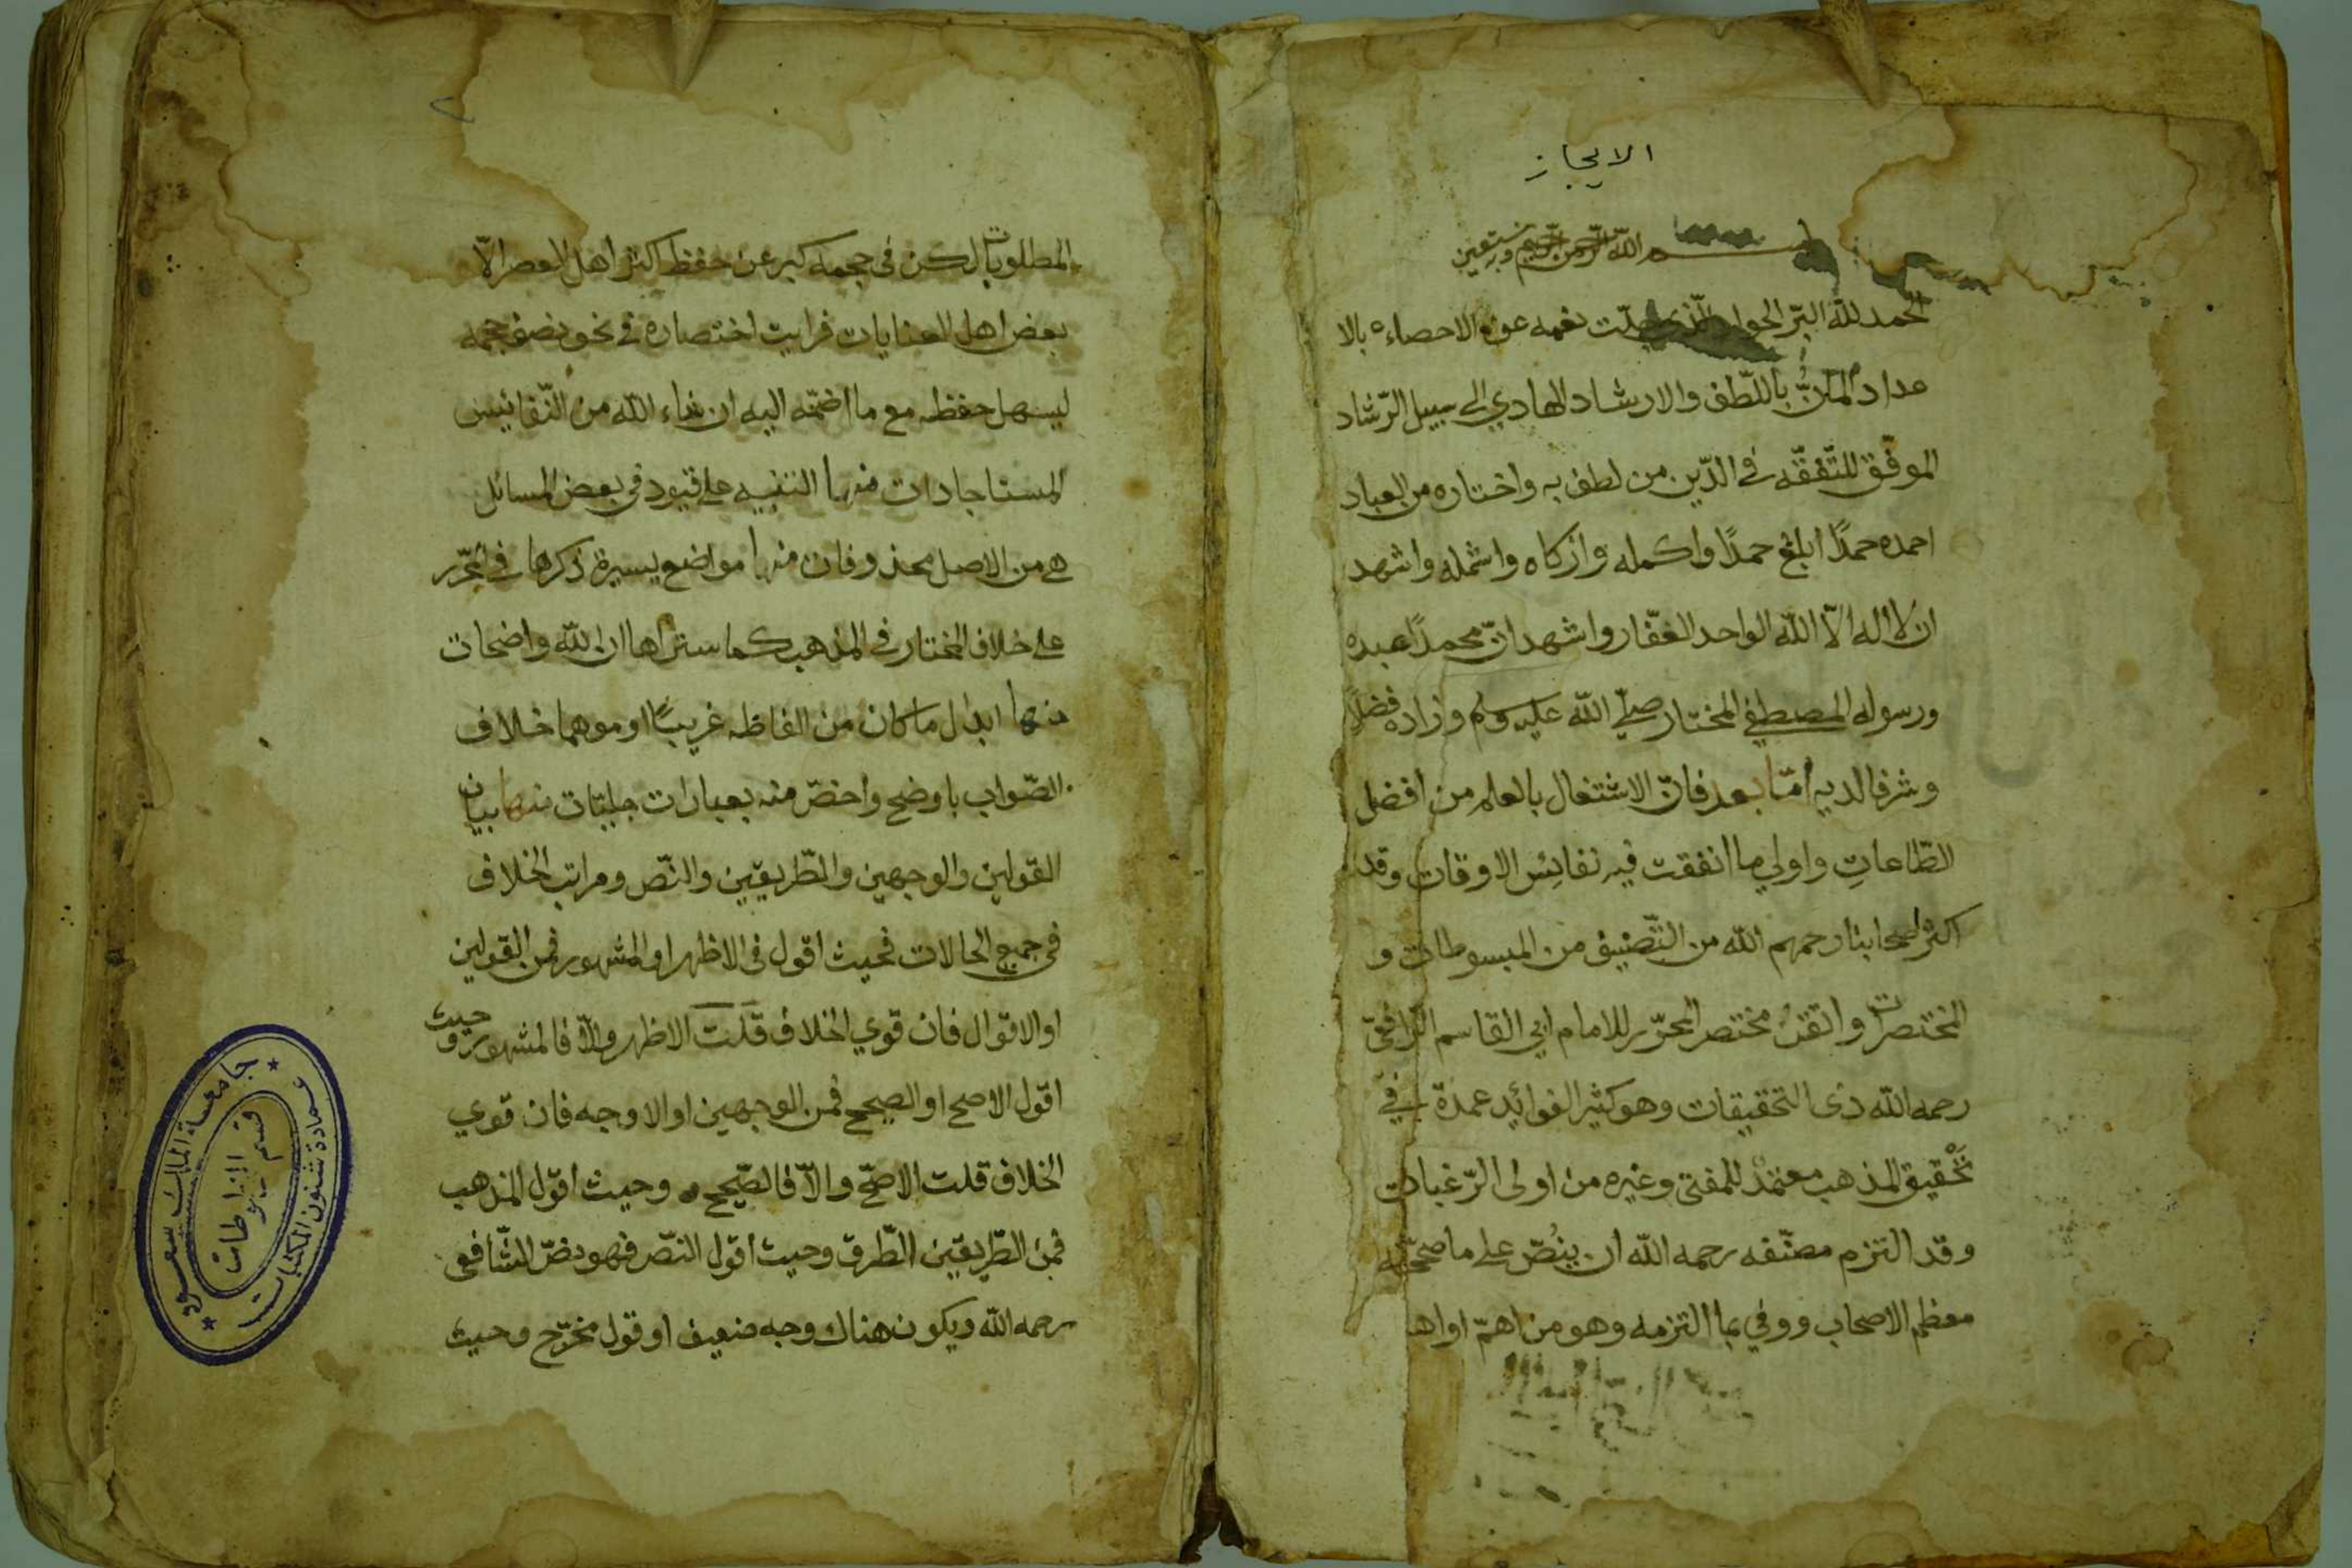 الايجاز
بسم الله الرحمن الرحيم وبه نستعين
الحمد لله البرّ الجواد الّذي جلّت نعمه عن الاحصاء بالا
عداد المانّ باللّطف والارشاد الهادي الى سبيل الرّشاد
الموفّق للتّفقّه في الدّين من لطف به واختاره من العباد
احمده حمدًا ابلغ حمدًا واكمله وازكاه واشمله واشهد
ان لا اله الّا الله الواحد الغفّار واشهد انّ محمدًا عبده
ورسوله المصطفى المختار صلّى الله عليه وسلم وزاده فضلًا
وشرفا لديه امّا بعد فانّ الاشتغال بالعلم من افضل
الطّاعاتِ واولى ما انفقت فيه نفائِس الاوقات وقد
اكثر اصحابنا رحمهم الله من التّصنيف من المبسوطات و
المختصرات واتقنُ مختصر المحرّر للامام ابي القاسم الرّافعيّ
رحمه الله ذى التحقيقات وهو كثير الفوائد عمدة في
تحْقيق المذهب معتمدٌ للمفتى وغيره من اولى الرّغبات
وقد التزم مصنّفه رحمه الله ان ينُصّ على ما صحّحه
معظم الاصحاب ووفى بما التزمه وهو من اهمّ او اهم
المطلوبات لكن في حجمه كبر عن حفظ اكثر اهل العصر الّا
بعض اهل العنايات فرايت اختصاره في نحو نصف حجمه
ليسهل حفظه مع ما اضمّه اليه ان شاء الله من النّفائيس
المستاجادات منها التنبيه على قيود في بعض المسائل
هي من الاصل محذوفات منها مواضع يسيرة ذكرها في المحرّر
على خلاف المختار في المذهب كما ستراها ان الله واضحات
منها ابدل ما كان من الفاظه غريبًا او موهما خلاف
الصّواب باوضح واخصّ منه بعبارات جليّات منها بيان
القولين والوجهين والطّريقين والنّص ومراتب الخلاف
في جميع الحالات فحيث اقول في الاظهر او المشهور فمن القولين
او الاقوال فان قوي الخلاف قلت الاظهر والّا فالمشهور وحيث
اقول الاصح او الصحيح فمن الوجهين او الاوجه فان قوي
الخلاف قلت الاصحّ والّا فالصّحيح وحيث اقول المذهب
فمن الطّريقين الطّرق وحيث اقول النصّ فهو نصّ الشّافعى
رحمه الله ويكون هناك وجه ضعيف او قول مخرّج وحيث
جامعة الملك سعود
عمادة شئون المكتبات
قسم المخطوطات